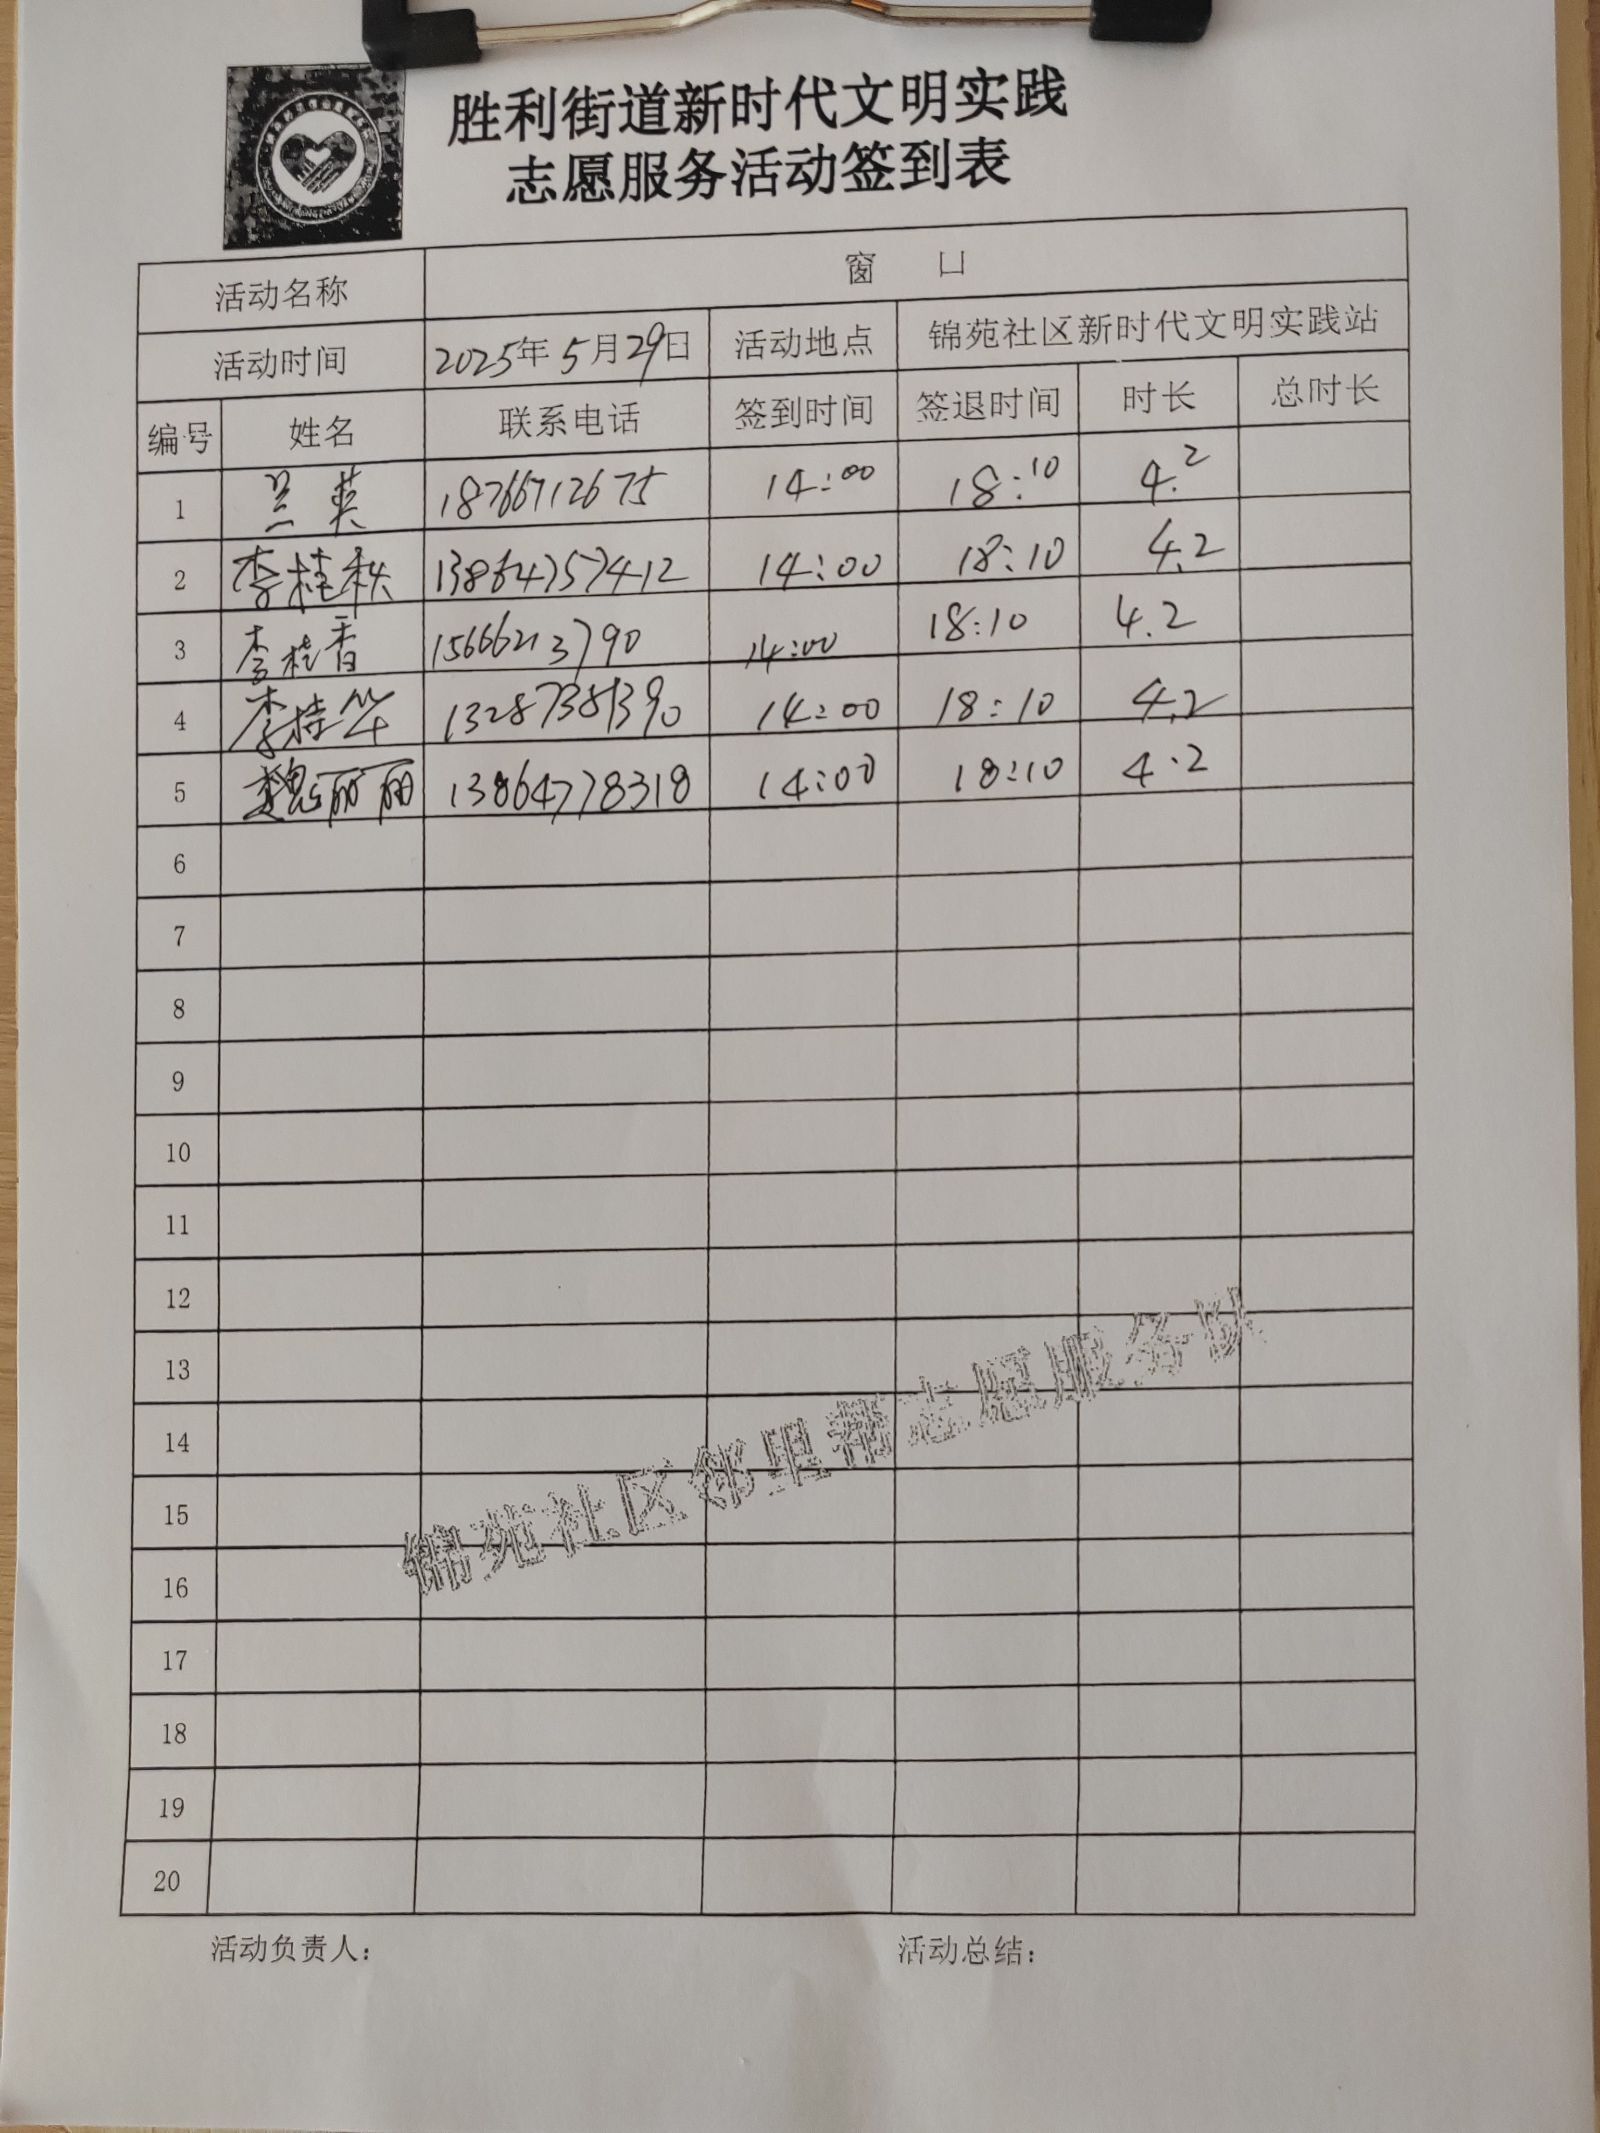 胜利街道新时代文明实践
志愿服务活动签到表
活动名称 窗 口
活动时间 2025年5月29日 活动地点 锦苑社区新时代文明实践站
编号 姓名 联系电话 签到时间 签退时间 时长 总时长
1 兰英 18766712675 14:00 18:10 4.2
2 李桂秋 13864757412 14:00 18:10 4.2
3 李桂香 15666213790 14:00 18:10 4.2
4 李桂华 13287381390 14:00 18:10 4.2
5 魏丽丽 13864778318 14:00 18:10 4.2
6
7
8
9
10
11
12
13
14
15
16
17
18
19
20
锦苑社区邻里帮志愿服务队
活动负责人: 活动总结: